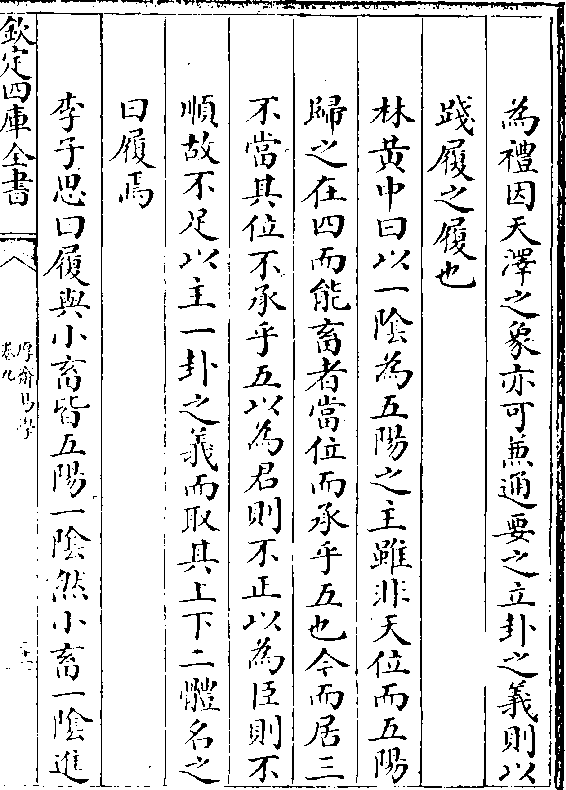 為禮因天澤之象亦可兼通要之立卦之義則以
踐履之履也
林黄中曰以一陰為五陽之主雖非天位而五陽
歸之在四而能畜者當位而承乎五也今而居三
不當其位不承乎五以為君則不正以為臣則不
順故不足以主一卦之義而取其上下二體名之
曰履焉
李子思曰履與小畜皆五陽一陰然小畜一陰進
欽定四庫全書
厚齋易學
卷九